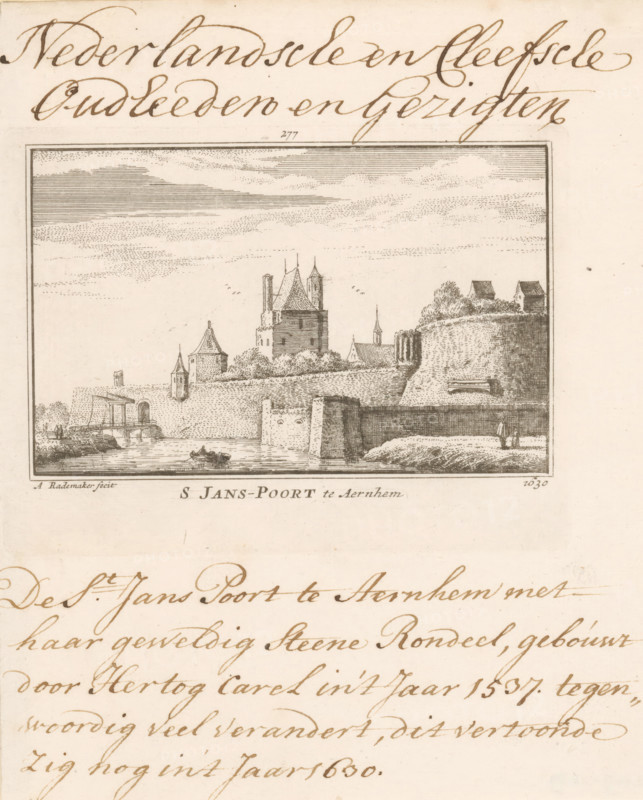 Nederlandsche en Cleefsche
Oudheeden en Gezigten
277
A Rademaker fecit
S JANS-POORT te Aernhem
1630
De St. Jans Poort te Aernhem met
haar geweldig Steene Rondeel, gebouwt
door Hertog Carel in't Jaar 1537. tegen„
woordig veel verandert, dit vertoonde
Zig nog in't Jaar 1630.